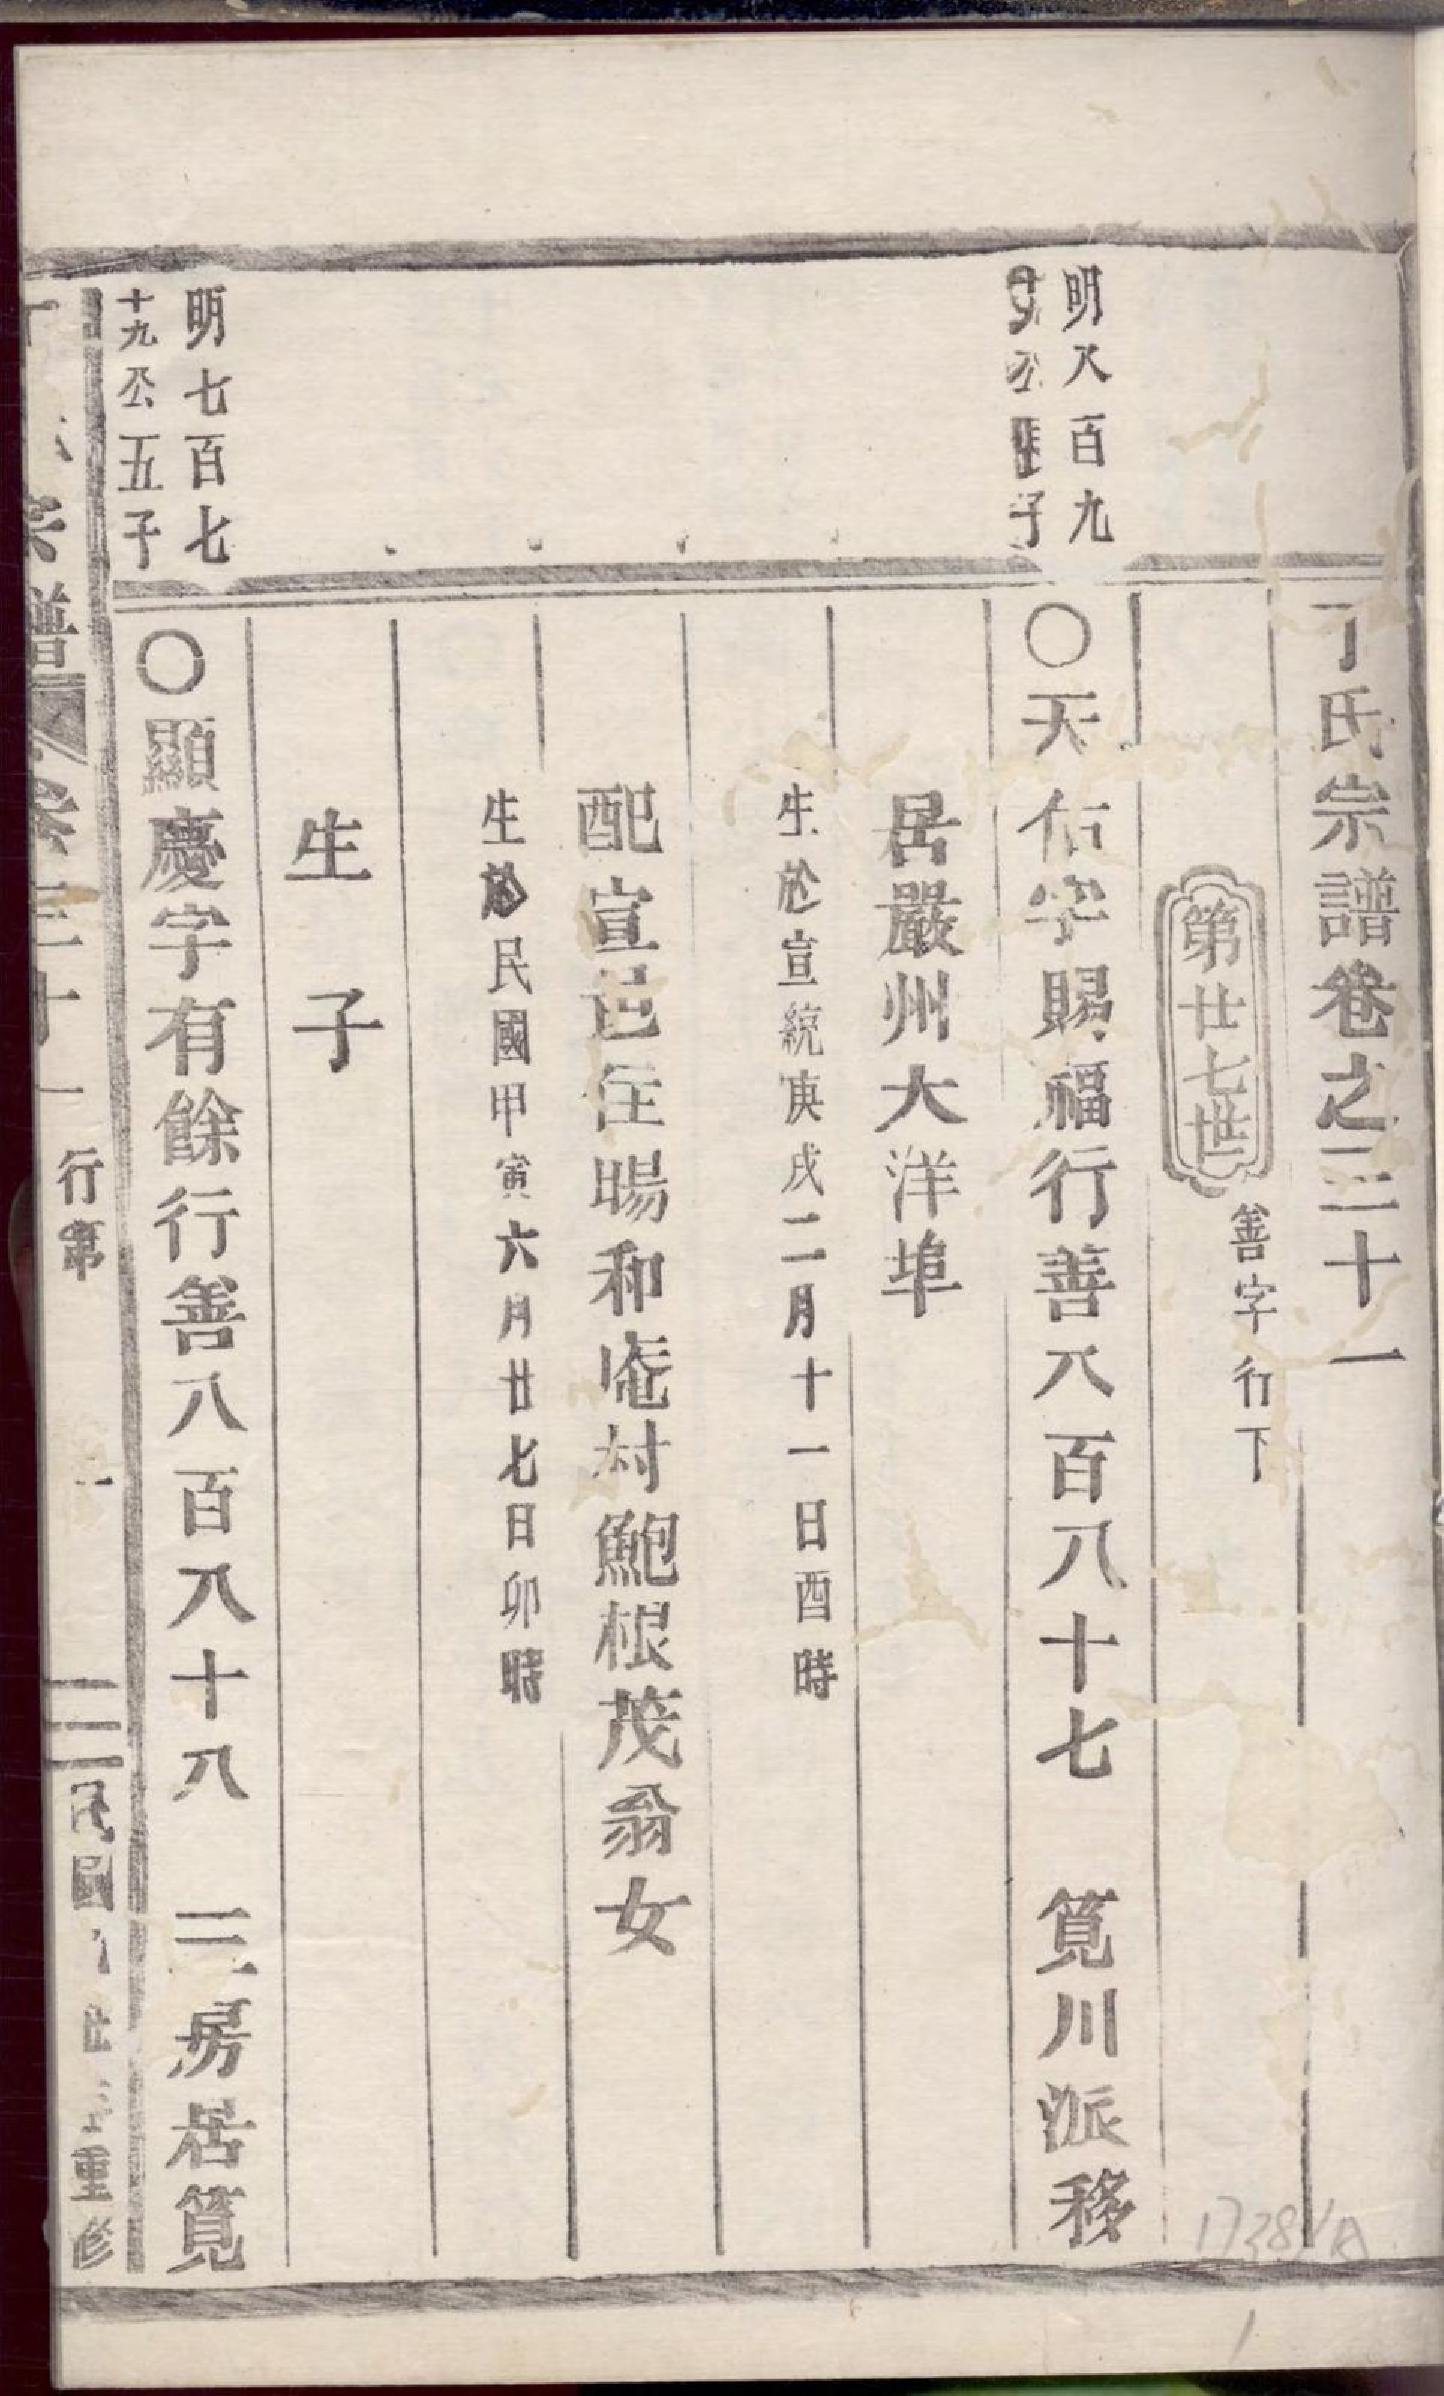 丁氏宗譜卷之三十一
第廿七世
善字行下
明八百九
公 子
〇天佑字賜福行善八百八十七 筧川派移
居嚴州大洋埠
生於宣統庚戌二月十一日酉時
配宣邑住暘和庵村鮑根茂翁女
生於民國甲寅六月廿七日卯時
生 子
明七百七
十九公五子
〇顯慶字有餘行善八百八十八 三房居筧
宗譜 卷三十一 行第 一 民國 重修
17384A
1